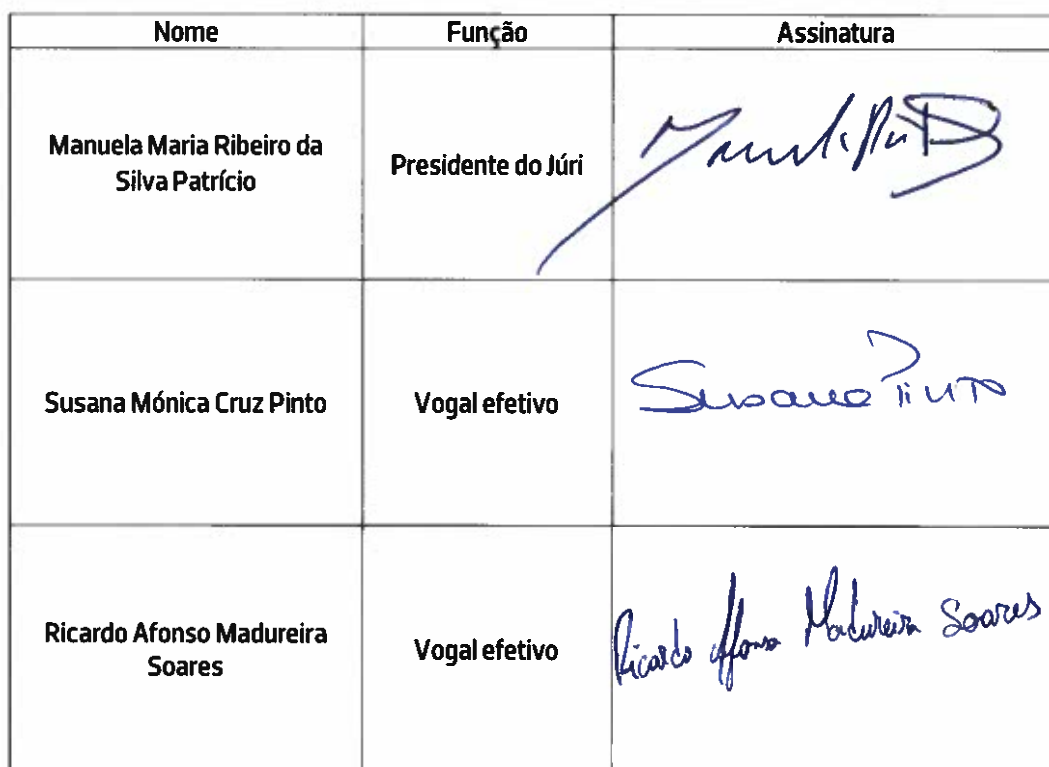 Nome Função Assinatura
Manuela Maria Ribeiro da
Silva Patrício
Presidente do Júri
Susana Mónica Cruz Pinto
Vogal efetivo
Susana Pinto
Ricardo Afonso Madureira
Soares
Vogal efetivo
Ricardo Afonso Madureira Soares